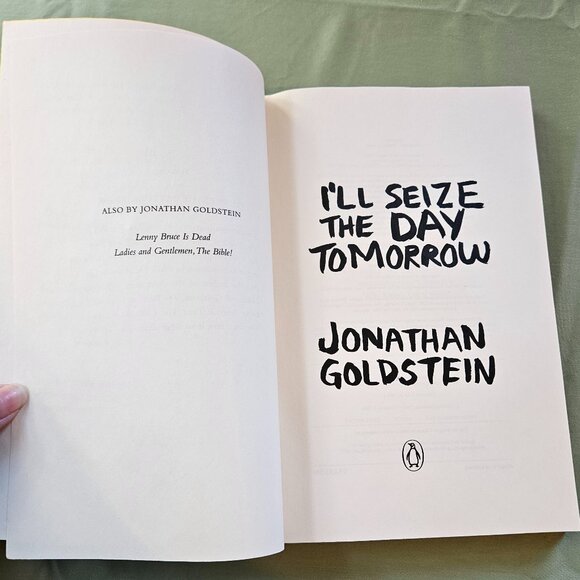 ALSO BY JONATHAN GOLDSTEIN
Lenny Bruce Is Dead
Ladies and Gentlemen, The Bible!
I'LL SEIZE
THE DAY
TOMORROW
JONATHAN
GOLDSTEIN